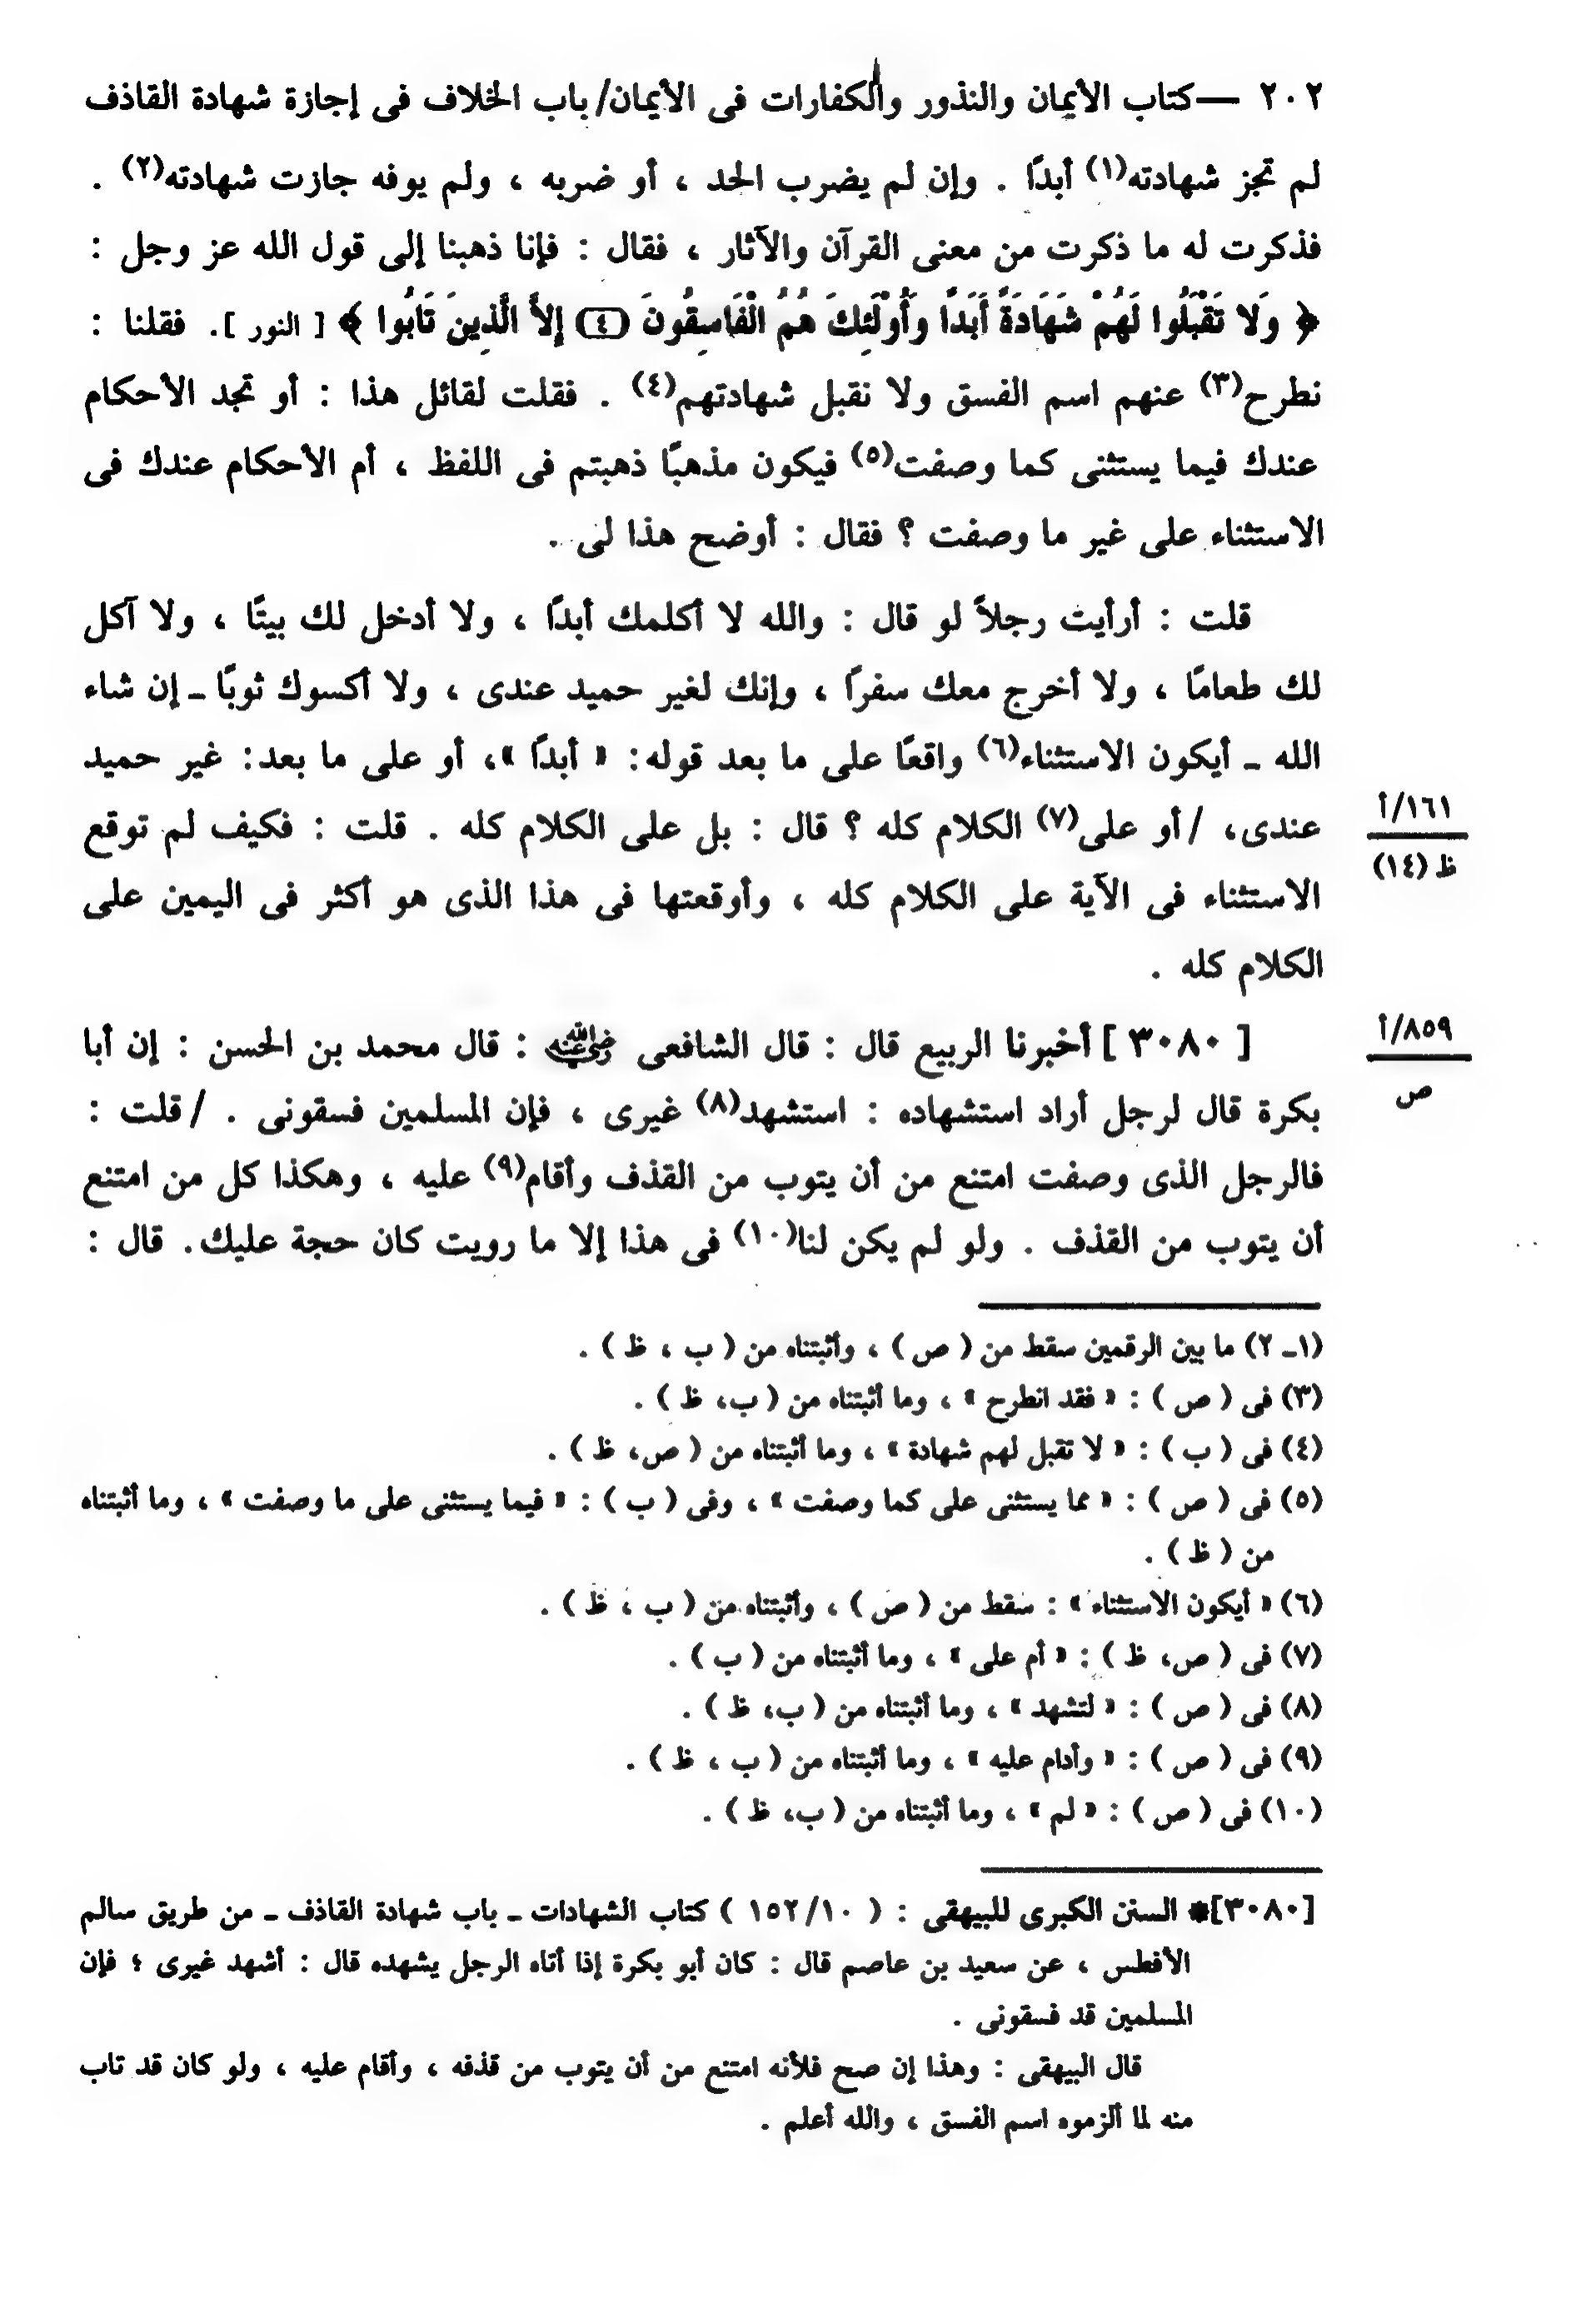 ٢٠٢ — كتاب الأيمان والنذور والكفارات فى الأيمان/ باب الخلاف فى إجازة شهادة القاذف
لم تجز شهادته(١) أبدًا . وإن لم يضرب الحد ، أو ضربه ، ولم يوفه جازت شهادته(٢) .
فذكرت له ما ذكرت من معنى القرآن والآثار ، فقال : فإنا ذهبنا إلى قول الله عز وجل :
﴿ وَلا تَقْبَلُوا لَهُمْ شَهَادَةً أَبَدًا وَأُوْلَئِكَ هُمُ الْفَاسِقُونَ (٤) إِلاَّ الَّذِينَ تَابُوا ﴾ [ النور ]. فقلنا :
نطرح(٣) عنهم اسم الفسق ولا نقبل شهادتهم(٤) . فقلت لقائل هذا : أو تجد الأحكام
عندك فيما يستثنى كما وصفت(٥) فيكون مذهبًا ذهبتم فى اللفظ ، أم الأحكام عندك فى
الاستثناء على غير ما وصفت ؟ فقال : أوضح هذا لى .
قلت : أرأيت رجلاً لو قال : والله لا أكلمك أبدًا ، ولا أدخل لك بيتًا ، ولا آكل
لك طعامًا ، ولا أخرج معك سفرًا ، وإنك لغير حميد عندى ، ولا أكسوك ثوبًا ـ إن شاء
الله ـ أيكون الاستثناء(٦) واقعًا على ما بعد قوله: « أبدًا »، أو على ما بعد: غير حميد
عندى، /أو على(٧) الكلام كله ؟ قال : بل على الكلام كله . قلت : فكيف لم توقع
١٦١/أ
ظ (١٤)
الاستثناء فى الآية على الكلام كله ، وأوقعتها فى هذا الذى هو أكثر فى اليمين على
الكلام كله .
[ ٣٠٨٠ ] أخبرنا الربيع قال : قال الشافعى رضي الله عنه : قال محمد بن الحسن : إن أبا
٨٥٩/أ
ص
بكرة قال لرجل أراد استشهاده : استشهد(٨) غيرى ، فإن المسلمين فسقونى . /قلت :
فالرجل الذى وصفت امتنع من أن يتوب من القذف وأقام(٩) عليه ، وهكذا كل من امتنع
أن يتوب من القذف . ولو لم يكن لنا(١٠) فى هذا إلا ما رويت كان حجة عليك. قال :
(١ـ ٢) ما بين الرقمين سقط من ( ص ) ، وأثبتناه من ( ب ، ظ ) .
(٣) فى ( ص ) : « فقد انطرح » ، وما أثبتناه من ( ب، ظ ) .
(٤) فى ( ب ) : « لا تقبل لهم شهادة » ، وما أثبتناه من ( ص، ظ ) .
(٥) فى ( ص ) : « مما يستثنى على كما وصفت » ، وفى ( ب ) : « فيما يستثنى على ما وصفت » ، وما أثبتناه
من ( ظ ) .
(٦) « أيكون الاستثناء » : سقط من ( ص ) ، وأثبتناه من ( ب ، ظ ) .
(٧) فى ( ص، ظ ) : « أم على » ، وما أثبتناه من ( ب ) .
(٨) فى ( ص ) : « لتشهد » ، وما أثبتناه من ( ب، ظ ) .
(٩) فى ( ص ) : « وأدام عليه » ، وما أثبتناه من ( ب ، ظ ) .
(١٠) فى ( ص ) : « لم » ، وما أثبتناه من ( ب، ظ ) .
[٣٠٨٠]* السنن الكبرى للبيهقى : ( ١٠/ ١٥٢ ) كتاب الشهادات ـ باب شهادة القاذف ـ من طريق سالم
الأفطس ، عن سعيد بن عاصم قال : كان أبو بكرة إذا أتاه الرجل يشهده قال : أشهد غيرى ؛ فإن
المسلمين قد فسقونى .
قال البيهقى : وهذا إن صح فلأنه امتنع من أن يتوب من قذفه ، وأقام عليه ، ولو كان قد تاب
منه لما ألزموه اسم الفسق ، والله أعلم .